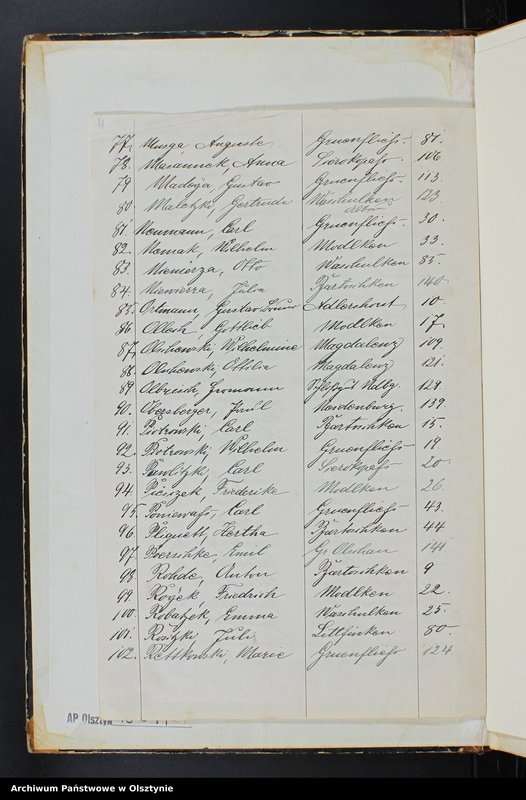 77. Murga Auguste, Gruenfliess. 87.
78. Masannek Anna Sierokopass. 106
79 Madeya, Gustav Gruenfliess. 113.
80. Maletzki, Gertrude Waschulken 123
81. Neumann, Carl Gruenfliess. 30.
82. Nowak, Wilhelm Modlken 33.
83. Niewierza, Otto Waschulken 85.
84. Niewierra, Julie Bartoschken 140.
85. Ortmann, Gustav Adlershorst 10.
86 Olbrich, Gottlieb Modlken 17.
87. Olschewski, Wilhelmine Magdalenz 109.
88. Olschewski, Ottilie Magdalenz 121.
89 Hermann Ndbg. 129.
90. Obersberger, Paul Neidenburg. 139
91. Piotrowski, Carl Bartoschken 15.
92. Piotrowski, Wilhelm Gruenfliess 19
93. Pawlitzki, Carl Sierokopass 20.
94. Pieszek, Friederike Modlken 26
95. Poniewass, Carl Gruenfliess 43.
96. Pliquett, Hertha Bartoschken 44
97. Emil Gr. Olschau 141
98. Rohde, Anton Bartoschken 9
99 Friedrich Modlken 22.
100. Robatzek, Emma Waschulken 25.
101. Rositzki, Juli Littfinken 80.
102. Rettkowski, Marie Gruenfliess 124
AP Olsztyn
Archiwum Państwowe w Olsztynie